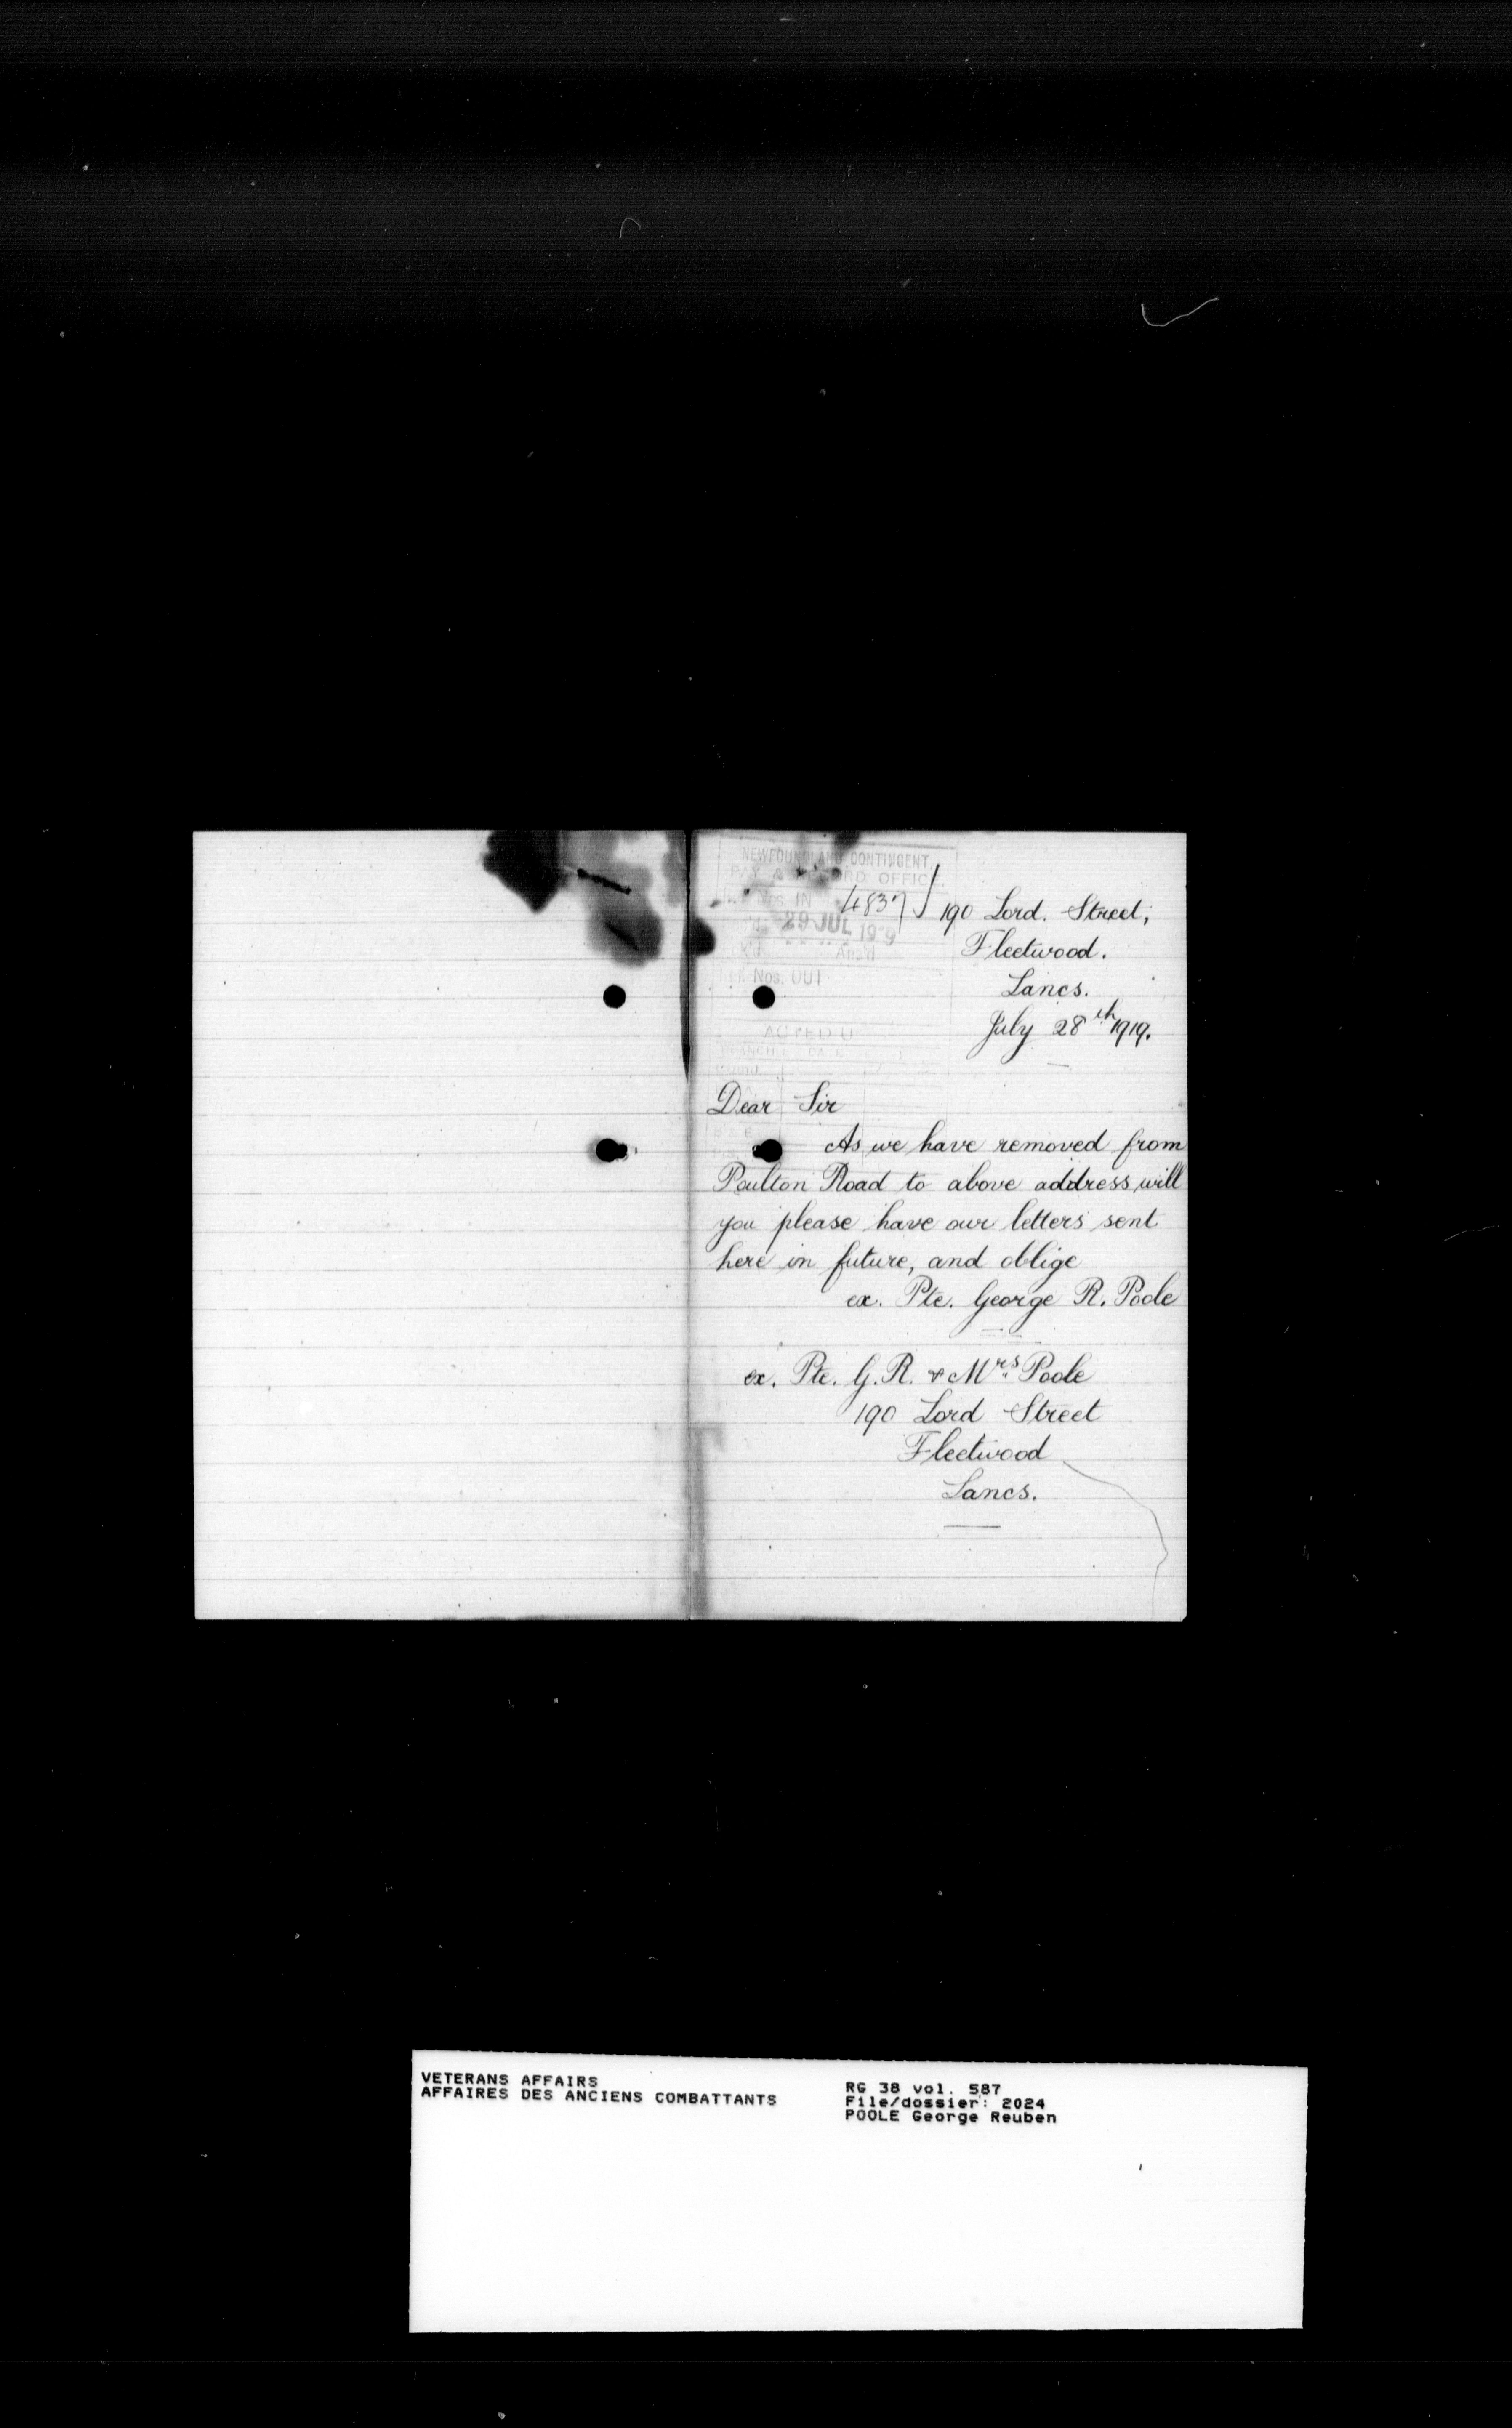 NEWFOUNDLAND CONTINGENT
PAY & RECORD OFFICE
Nos. IN 4837
29 JUL 1919
Nos. OUT
190 Lord. Street,
Fleetwood.
Lancs.
July 28th 1919.
Dear Sir
As we have removed from
Poulton Road to above address will
you please have our letters sent
here in future, and oblige
ex. Pte. George R. Poole
ex. Pte. G.R. & Mrs Poole
190 Lord Street
Fleetwood
Lancs.
VETERANS AFFAIRS
AFFAIRES DES ANCIENS COMBATTANTS
RG 38 vol. 587
File/dossier: 2024
POOLE George Reuben